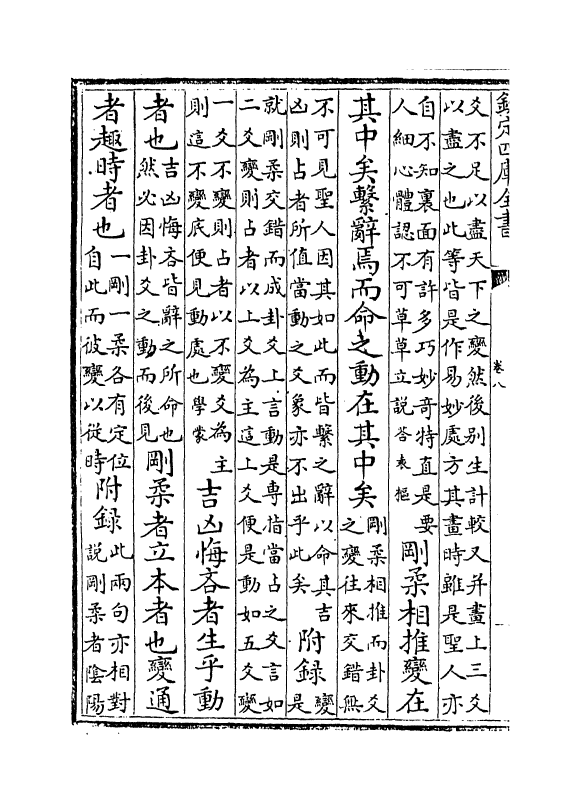 欽定四庫全書
卷八
爻不足以盡天下之變然後别生計較又并畫上三爻
以盡之也此等皆是作易妙處方其畫時雖是聖人亦
自不知裏面有許多巧妙奇特直是要
人細心體認不可草草立說答袁樞
剛柔相推變在
其中矣繫辭焉而命之動在其中矣
剛柔相推而卦爻
之變往來交錯無
不可見聖人因其如此而皆繫之辭以命其吉
凶則占者所值當動之爻象亦不出乎此矣
附録
變
是
就剛柔交錯而成卦爻上言動是専指當占之爻言如
二爻變則占者以上爻為主這上爻便是動如五爻變
一爻不變則占者以不變爻為主
則這不變底便見動處也學蒙
吉凶悔吝者生乎動
者也
吉凶悔吝皆辭之所命也
然必因卦爻之動而後見
剛柔者立本者也變通
者趣時者也
一剛一柔各有定位
自此而彼變以從時
附録
此兩句亦相對
說剛柔者陰陽